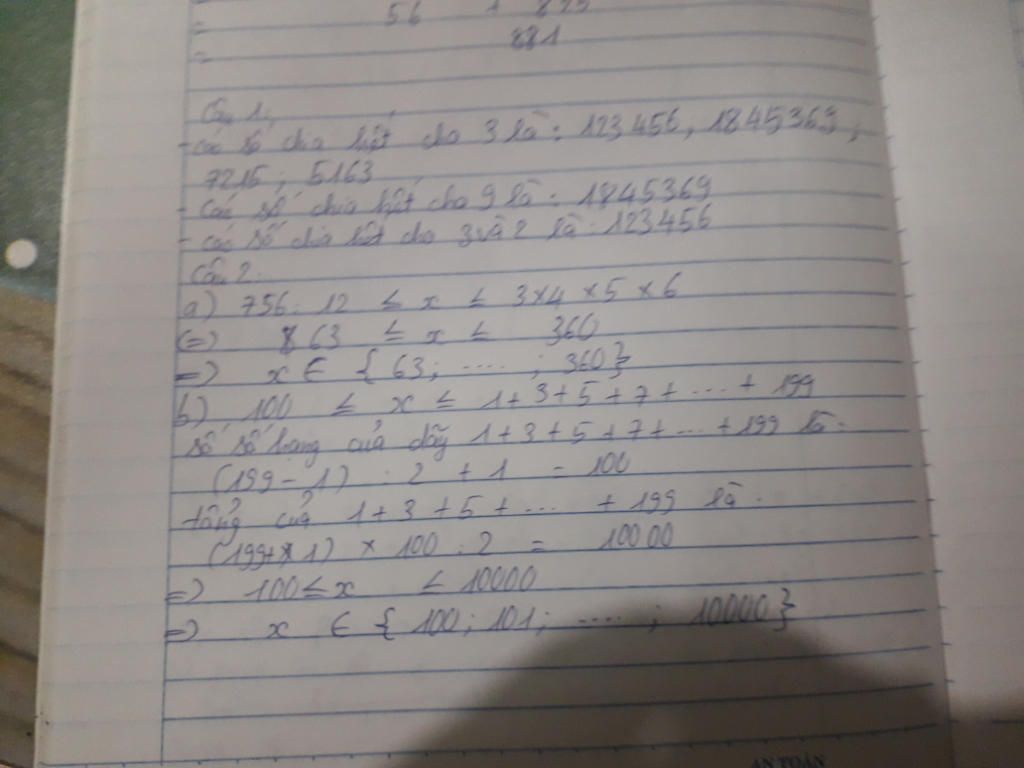 =
56 + 825
=
881
Câu 1:
- các số chia hết cho 3 là: 123456, 1845369;
7215; 5163
- các số chia hết cho 9 là: 1845369
- các số chia hết cho 3 và 2 là: 123456
Câu 2:
a) 756: 12 ≤ x ≤ 3×4×5×6
(=) 63 ≤ x ≤ 360
=) x ∈ {63; ....; 360}
b) 100 ≤ x ≤ 1+3+5+7+...+199
số số hạng của dãy 1+3+5+7+...+199 là:
(199-1) :2 +1 = 100
tổng của 1+3+5+... +199 là:
(199+1) × 100 :2 = 10000
=) 100≤x ≤10000
=) x ∈ {100; 101; ....; 10000}
AN TOÀN